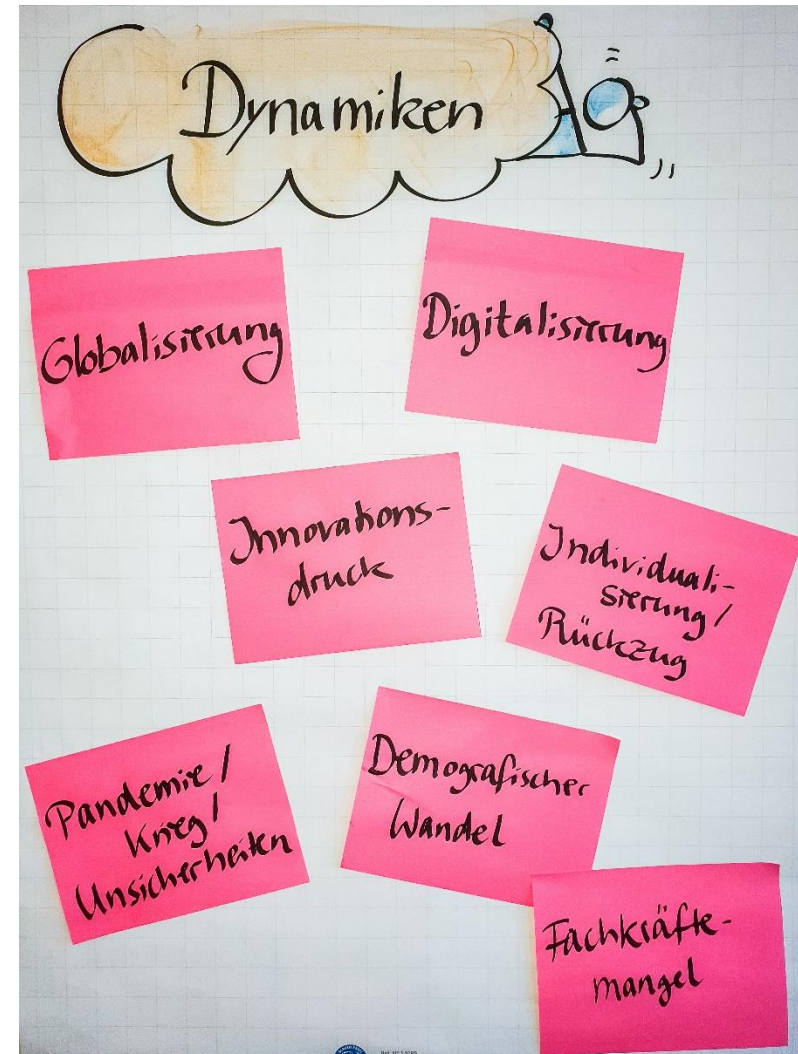 Dynamiken
Globalisierung
Digitalisierung
Innovations-
druck
Individuali-
sierung/
Rückzug
Pandemie/
Krieg/
Unsicherheiten
Demografischer
Wandel
Fachkräfte-
mangel